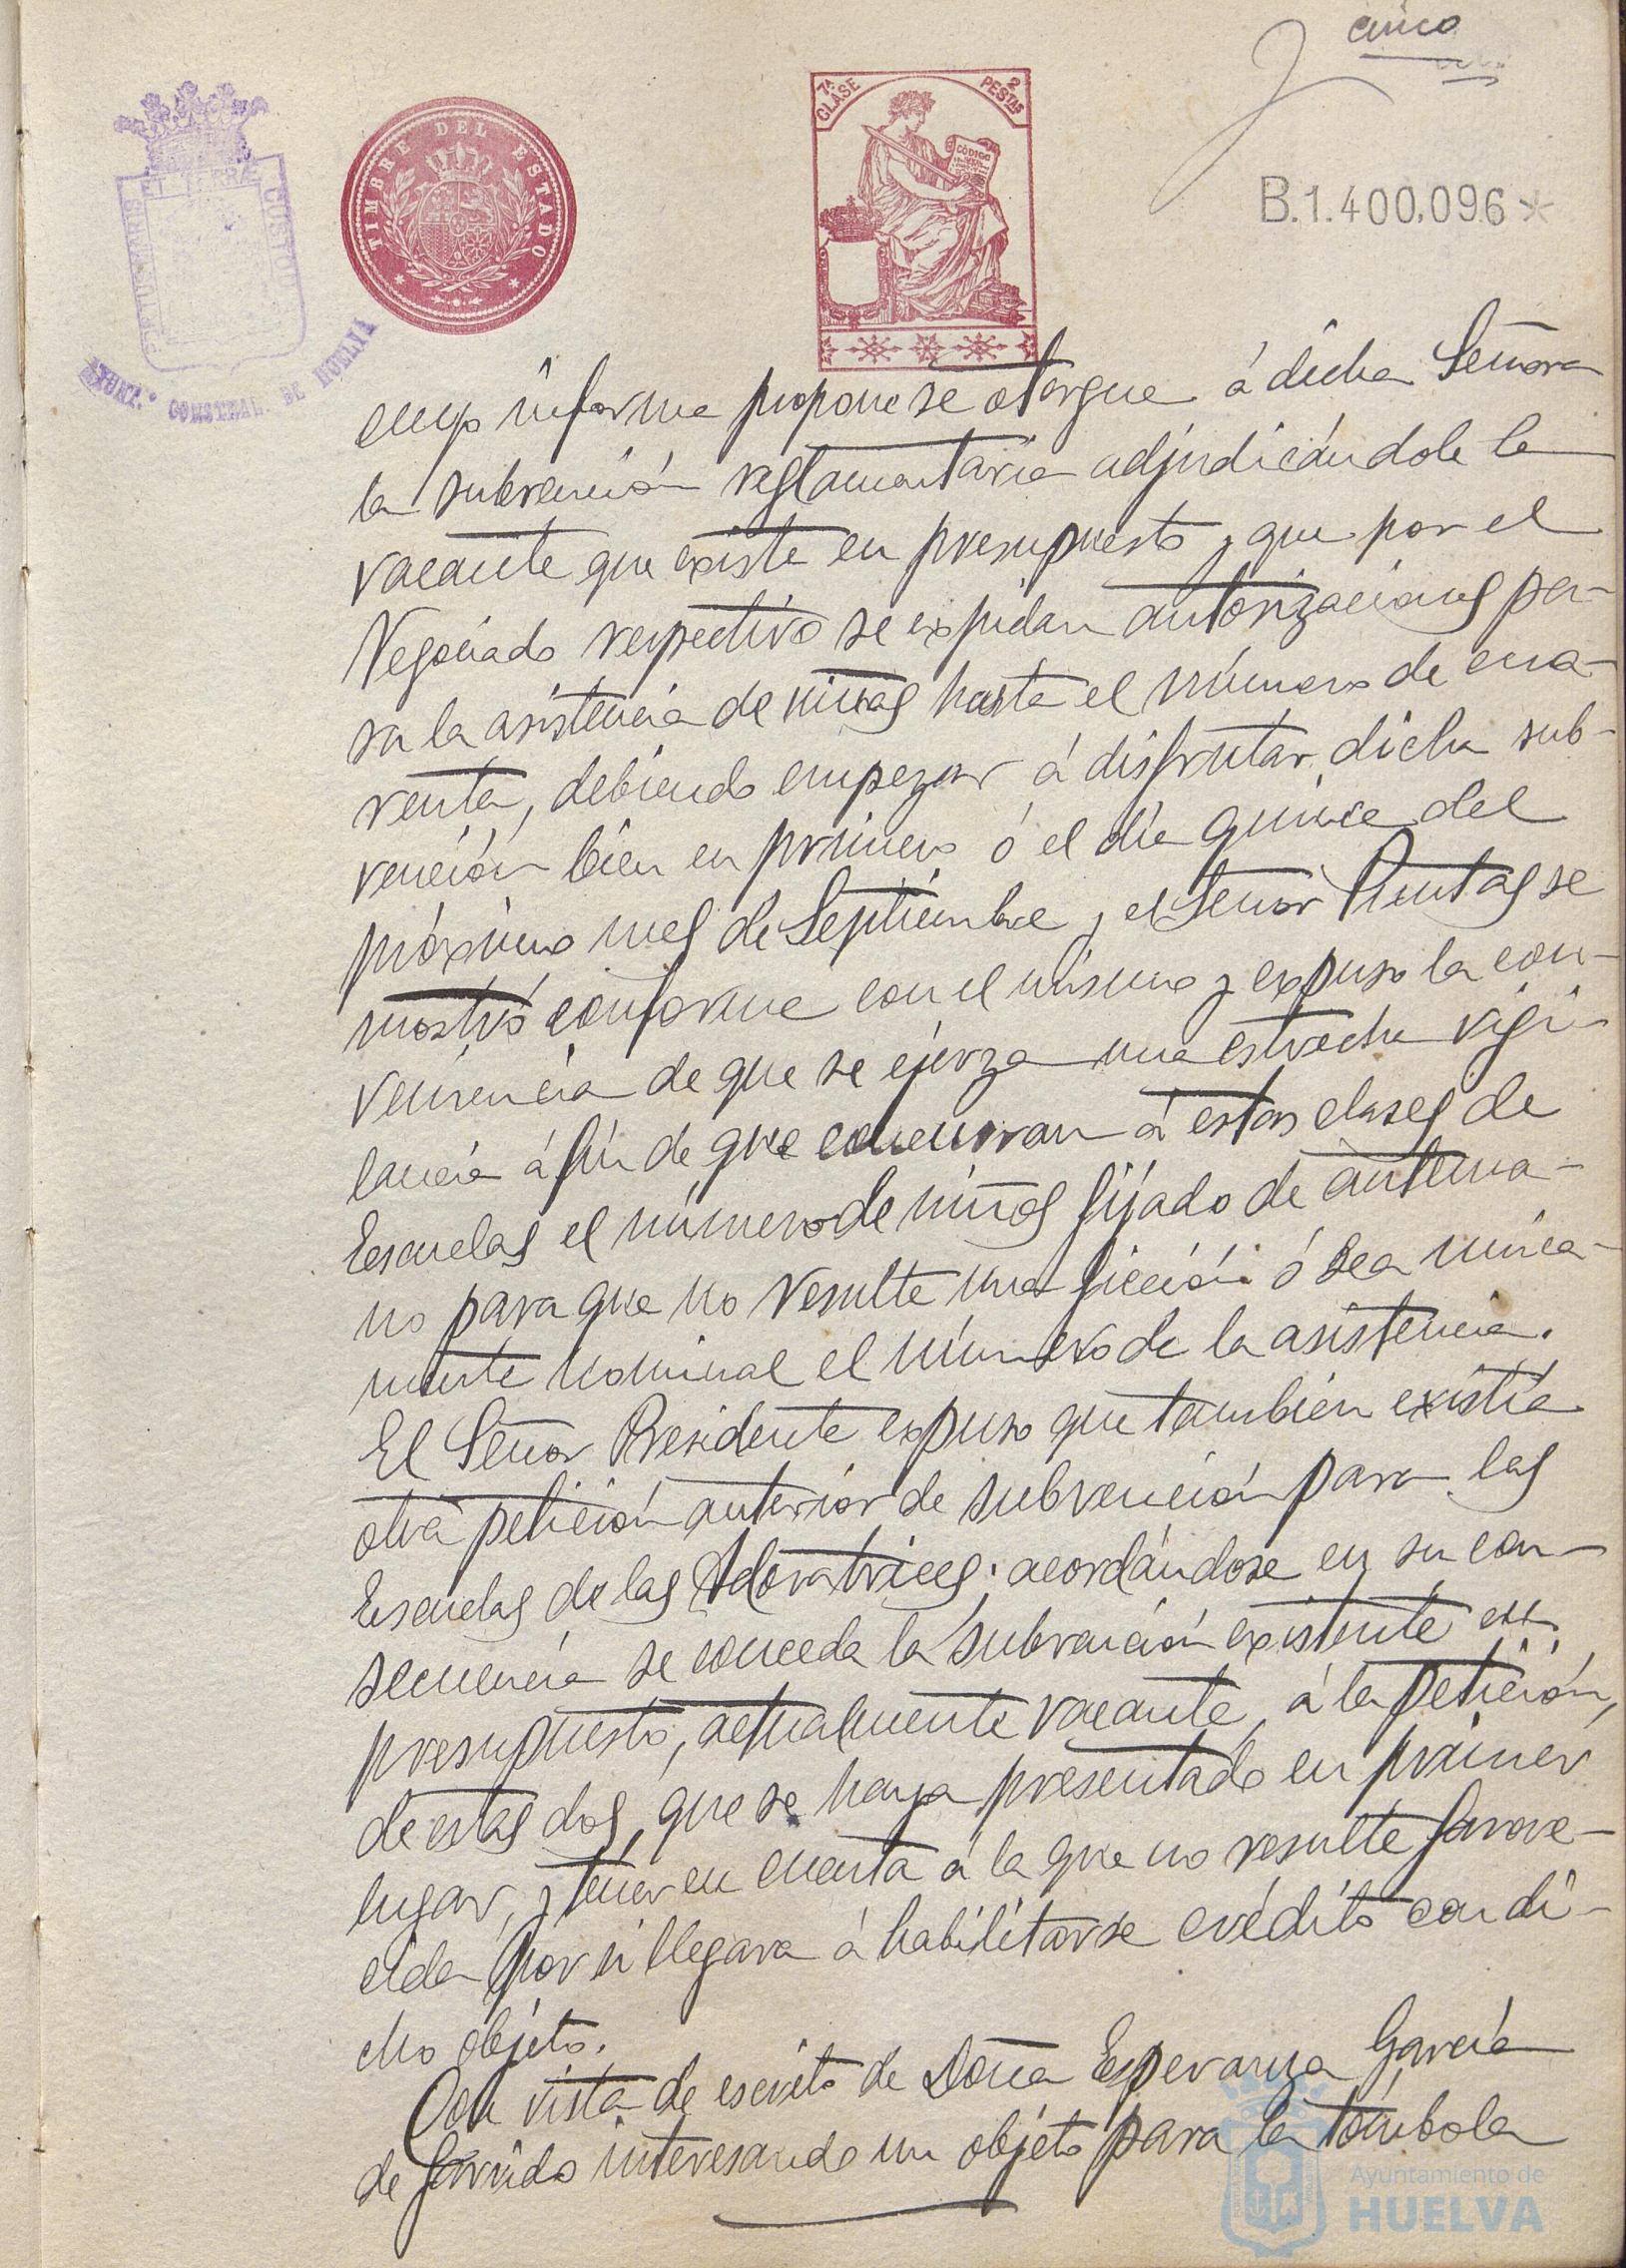 cinco
7ª CLASE
2 PESTAS
CÓDIGO
TIMBRE DEL ESTADO
B.1.400.096*
PORTUS MARIS ET TERRÆ CUSTODIA
AYUNTº CONSTNAL. DE HUELVA
cuyo informe propone se otorgue á dicha Señora
la subvención reglamentaria adjudicándole la
vacante que existe en presupuesto y que por el
Negociado respectivo se expidan autorizaciones pa-
ra la asistencia de niñas hasta el número de cua-
renta, debiendo empezar á disfrutar dicha sub-
vención bien en primero ó el día quince del
próximo mes de Septiembre y el Señor Puntas se
mostró conforme con el mismo y expuso la con-
veniencia de que se ejerza una estrecha vigi-
lancia á fin de que concurran á estas clases de
Escuelas el número de niños fijado de antema-
no para que no resulte una ficción ó sea única-
mente nominal el número de la asistencia.
El Señor Presidente expuso que también existía
otra petición anterior de subvención para las
Escuelas de las Adoratrices; acordándose en su con-
secuencia se conceda la subvención existente en
presupuesto, actualmente vacante, á la petición,
de estas dos, que se haya presentado en primer
lugar, y tener en cuenta á la que no resulte favore-
cida por si llegara á habilitarse crédito con di-
cho objeto.
Con vista de escrito de Doña Esperanza García
de Garrido interesando un objeto para la tómbola
Ayuntamiento de
HUELVA